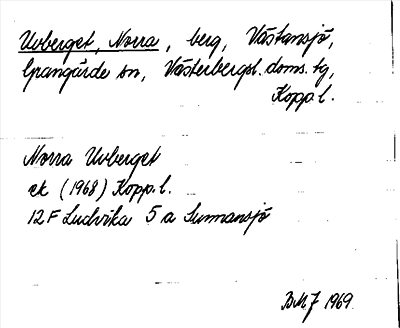 Uvberget, Norra, berg, Västansjö,
Grangärde sn, Västerbergsl. doms. tg,
Kopp. l.
Norra Uvberget
ek (1968) Kopp. l.
12 F Ludvika 5 a Sunnansjö
BMJ 1969